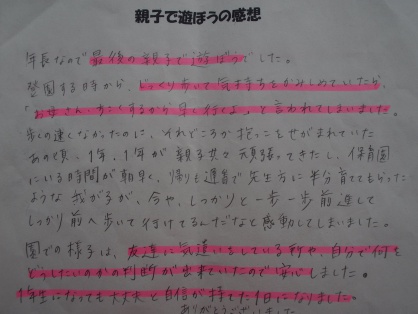 親子で遊ぼうの感想
年長なので最後の親子で遊ぼうでした。
登園する時から、じっくり歩いて気持ちをかみしめていたら、
「お母さん、ちこくするから早く行くよ。」と言われてしまいました。
歩くの速くなかったのに、それどころか抱っこをせがまれていた
あの頃、1年、1年が親子共々頑張ってきたし、保育園
にいる時間が朝早く、帰りも遅番で先生方に半分育ててもらった
ような我が子が、今や、しっかりと一歩一歩前進して
しっかり前へ歩いて行けてるんだなと感動してしまいました。
園での様子は、友達に気遣いをしている所や、自分で何を
どうしたいのかの判断が出来ていたので安心しました。
1年生になっても大丈夫と自信が持てた1日になりました。
ありがとうございました